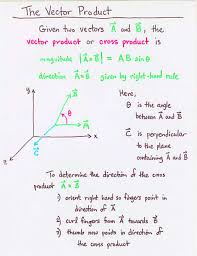 The Vector Product
Given two vectors A⃗ and B⃗, the
vector product or cross product is
magnitude |A⃗ × B⃗| = AB sin θ
direction A⃗ × B⃗ given by right-hand rule
y
B⃗
θ
A⃗
x
C⃗
z
Here,
θ is the angle
between A⃗ and B⃗
C⃗ is perpendicular
to the plane
containing A⃗ and B⃗
To determine the direction of the cross
product A⃗ × B⃗
1) orient right hand so fingers point in
direction of A⃗
2) curl fingers from A⃗ towards B⃗
3) thumb now points in direction of
the cross product